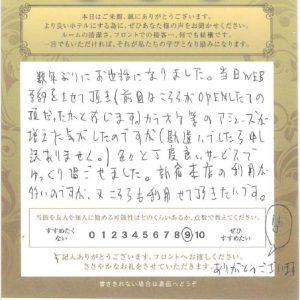 本日はご来館、誠にありがとうございます。
より良いホテルにする為、皆さまの声をお聞かせください。
ルームの清潔さ、フロントでの接客…何でも結構です。
一言でもいただければ、それが私たちの学びとなり励みになります。
数年ぶりにお世話になりました。当日WEB
予約をさせて頂き(前回なころがOPENしたての
頃だったかと思います。)カラオケ等のアミューズが
増えた気がしたのですが(勘違いでしたら申し
訳ありません。)色々と丁度良いサービスで
ゆっくり過ごせました。新宿本店の利用が
多いのですが、又こころも利用させて頂きたいです。
当館を友人や知人に勧める可能性はどのくらいあるか、点数で教えてください。
すすめたくない
0 1 2 3 4 5 6 7 8 9 10
ぜひすすめたい
ご記入ありがとうございます。フロントへお渡しください。
ささやかなお礼をさせていただきます。
ありがとうございます
書ききれない場合は裏面へどうぞ